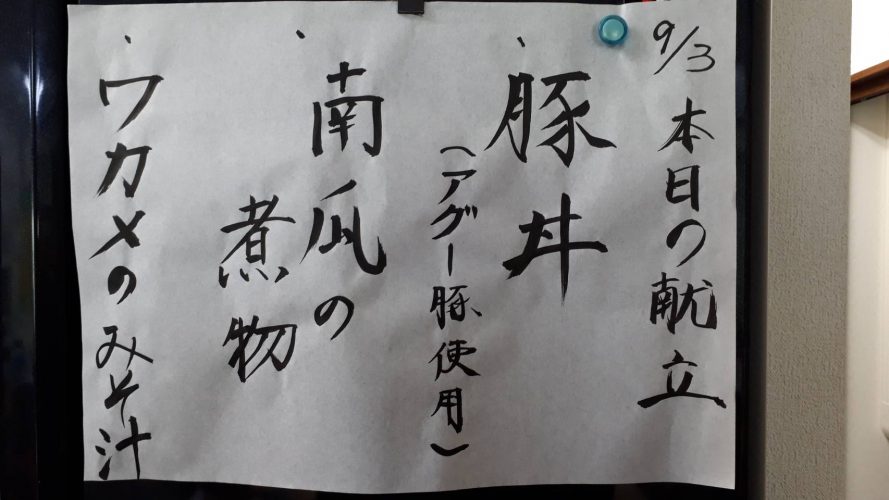 9/3 本日の献立
、豚丼
(アグー豚使用)
、南瓜の
煮物
、ワカメのみそ汁